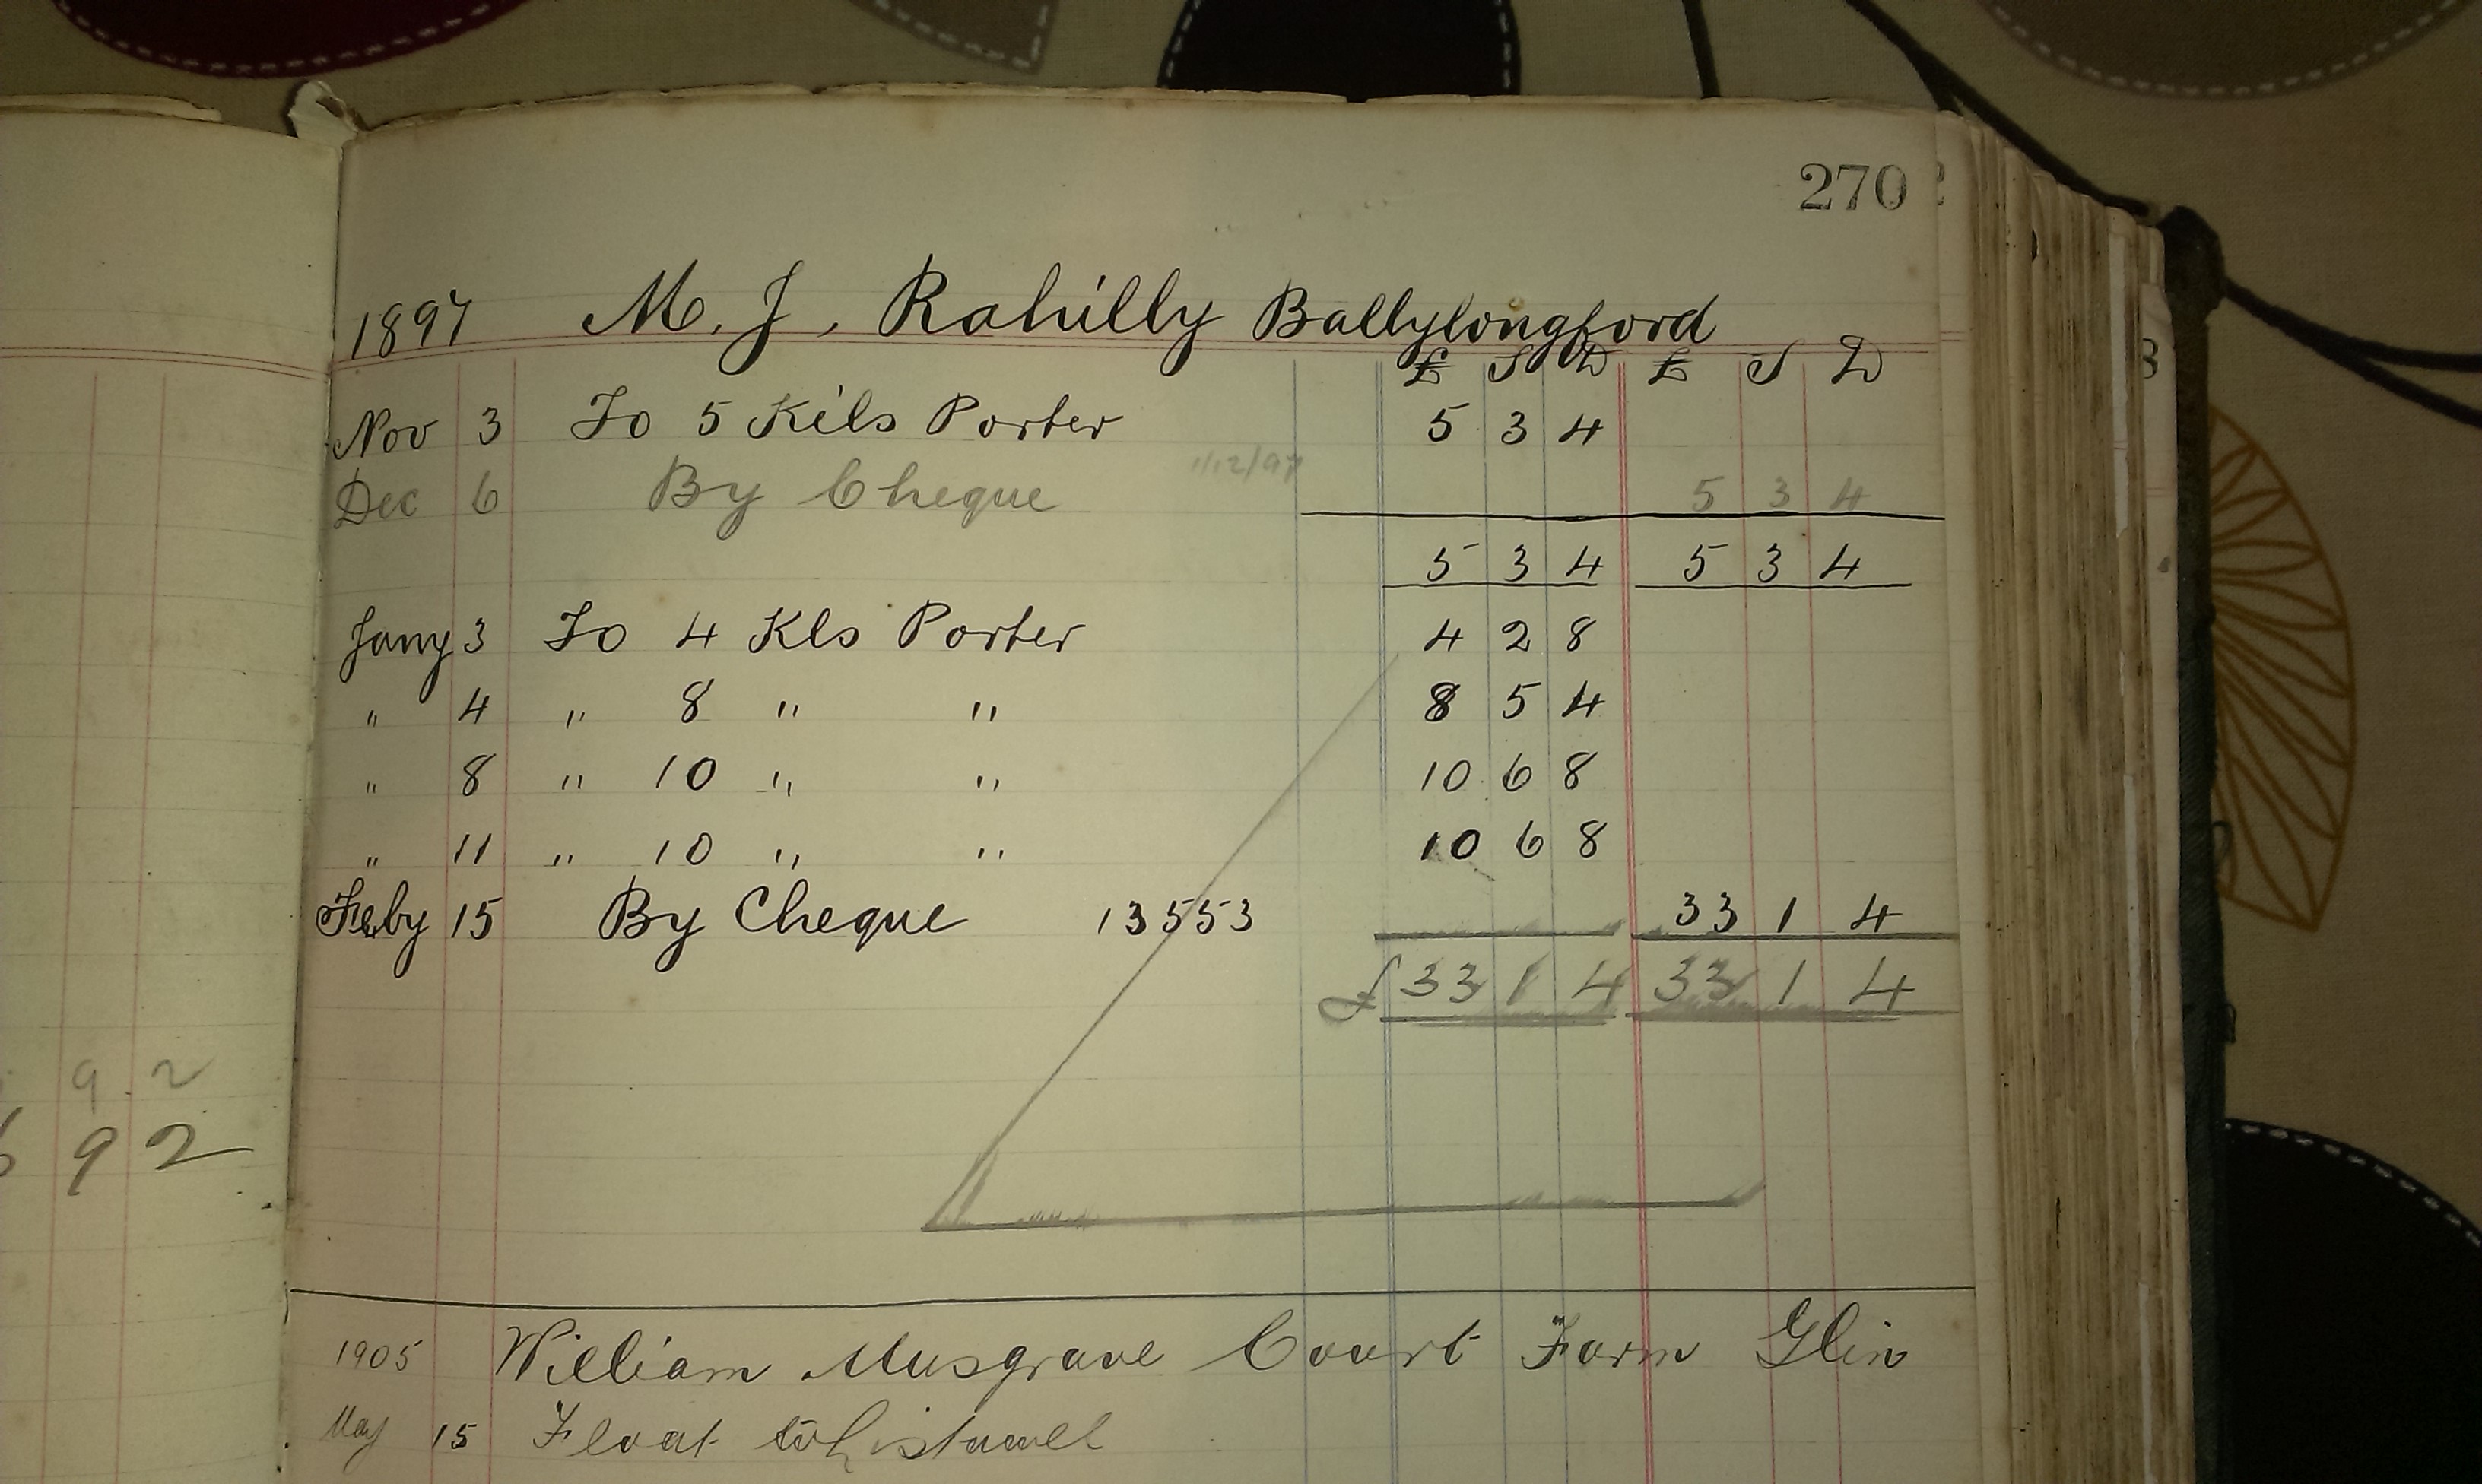 9 2
9 2
270
1897 M. J. Rahilly Ballylongford
£ S D £ S D
Nov 3 To 5 Kils Porter 5 3 4
Dec 6 By Cheque 1/12/97 5 3 4
5 3 4 5 3 4
Jany 3 To 4 Kls Porter 4 2 8
" 4 " 8 " " 8 5 4
" 8 " 10 " " 10 6 8
" 11 " 10 " " 10 6 8
Feby 15 By Cheque 13553 33 1 4
£ 33 1 4 33 1 4
1905 William Musgrave Court Farm Glin
May 15 Float to Listowel